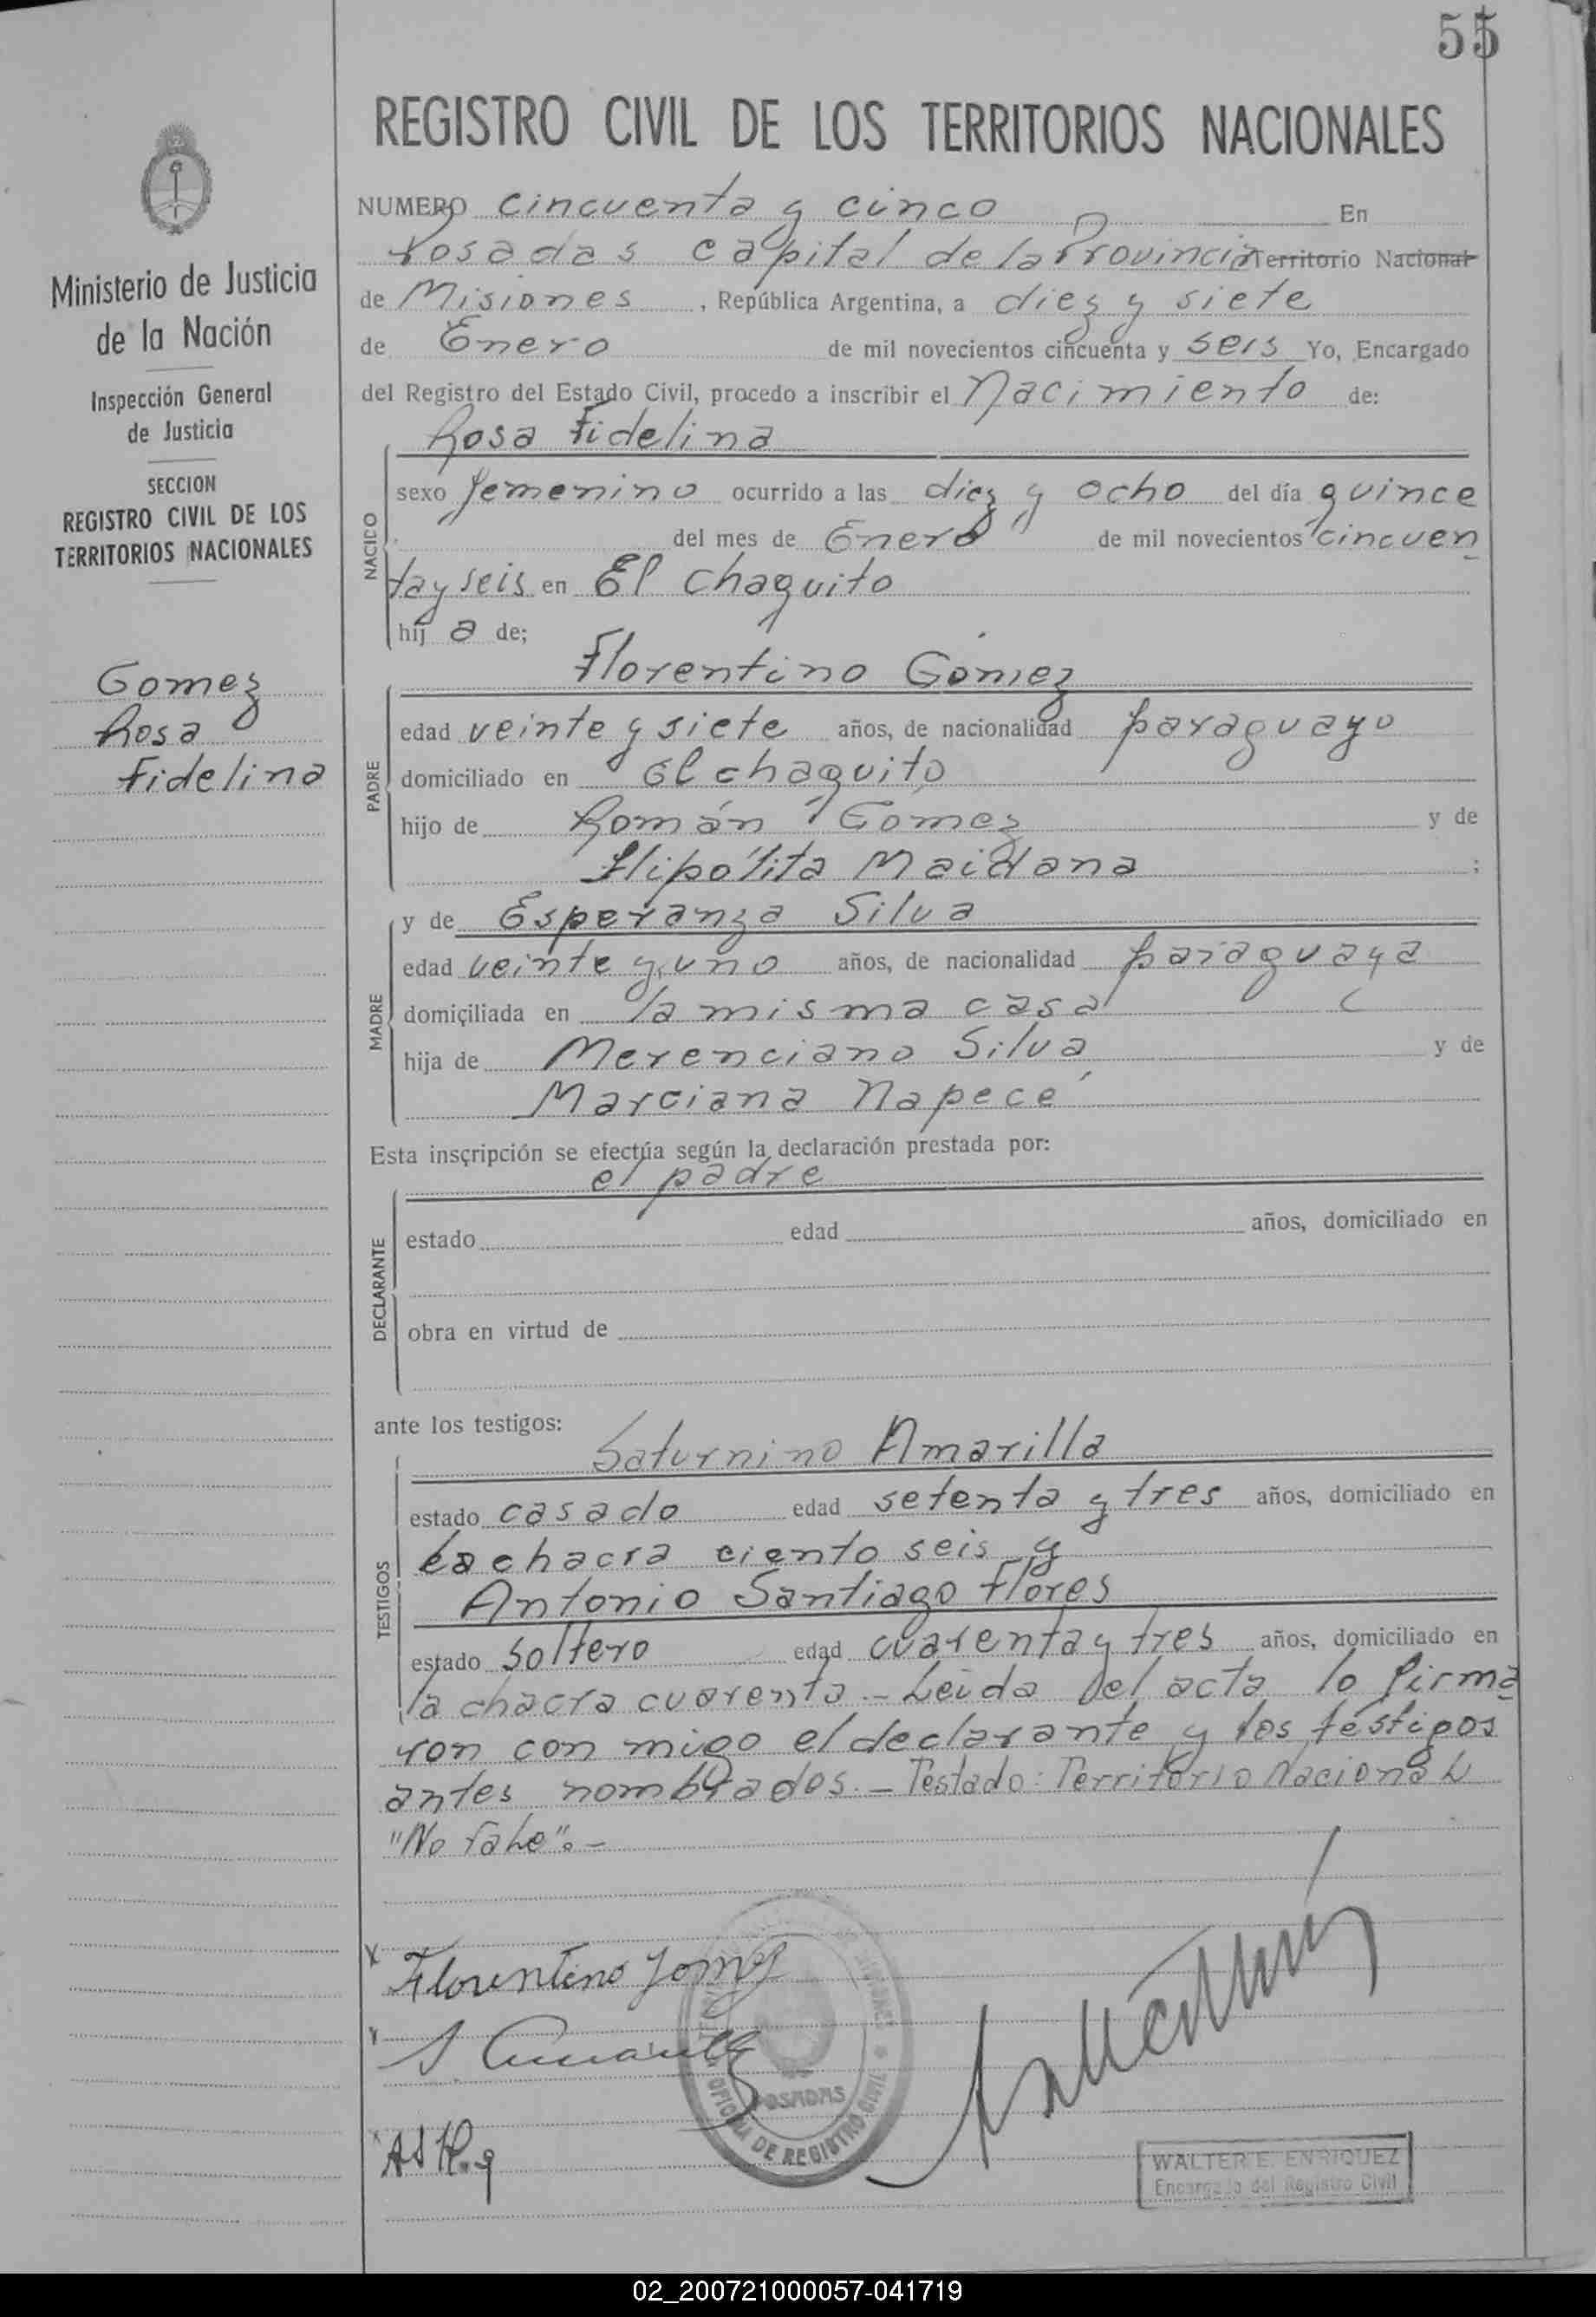 55
REGISTRO CIVIL DE LOS TERRITORIOS NACIONALES
Ministerio de Justicia
de la Nación
Inspección General
de Justicia
SECCION
REGISTRO CIVIL DE LOS
TERRITORIOS NACIONALES
Gomez
Rosa
Fidelina
NUMERO cincuenta y cinco En
Posadas Capital de la Provincia Territorio Nacional
de Misiones, República Argentina, a diez y siete
de Enero de mil novecientos cincuenta y seis Yo, Encargado
del Registro del Estado Civil, procedo a inscribir el Nacimiento de:
Rosa Fidelina
NACIDO
sexo femenino ocurrido a las diez y ocho del día quince
del mes de Enero de mil novecientos cincuen
ta y seis en El chaquito
hij a de;
Florentino Gómez
PADRE
edad veinte y siete años, de nacionalidad paraguayo
domiciliado en El chaquito
hijo de Román Gómez y de
Hipólita Maidana ;
y de Esperanza Silva
MADRE
edad veinte y uno años, de nacionalidad paraguaya
domiciliada en la misma casa
hija de Merenciano Silva y de
Marciana Napecé
Esta inscripción se efectúa según la declaración prestada por:
el padre
DECLARANTE
estado edad años, domiciliado en
obra en virtud de
ante los testigos:
Saturnino Amarilla
TESTIGOS
estado casado edad setenta y tres años, domiciliado en
la chacra ciento seis y
Antonio Santiago Flores
estado soltero edad cuarenta y tres años, domiciliado en
la chacra cuarenta.- Leida del acta lo firma
ron con migo el declarante y los testigos
antes nombrados.- Testado: Territorio Nacional
"No vale".-
Florentino Gomez
S. Amarilla
POSADAS
OFICINA DE REGISTRO CIVIL
WALTER E. ENRIQUEZ
Encargado del Registro Civil
02_200721000057-041719